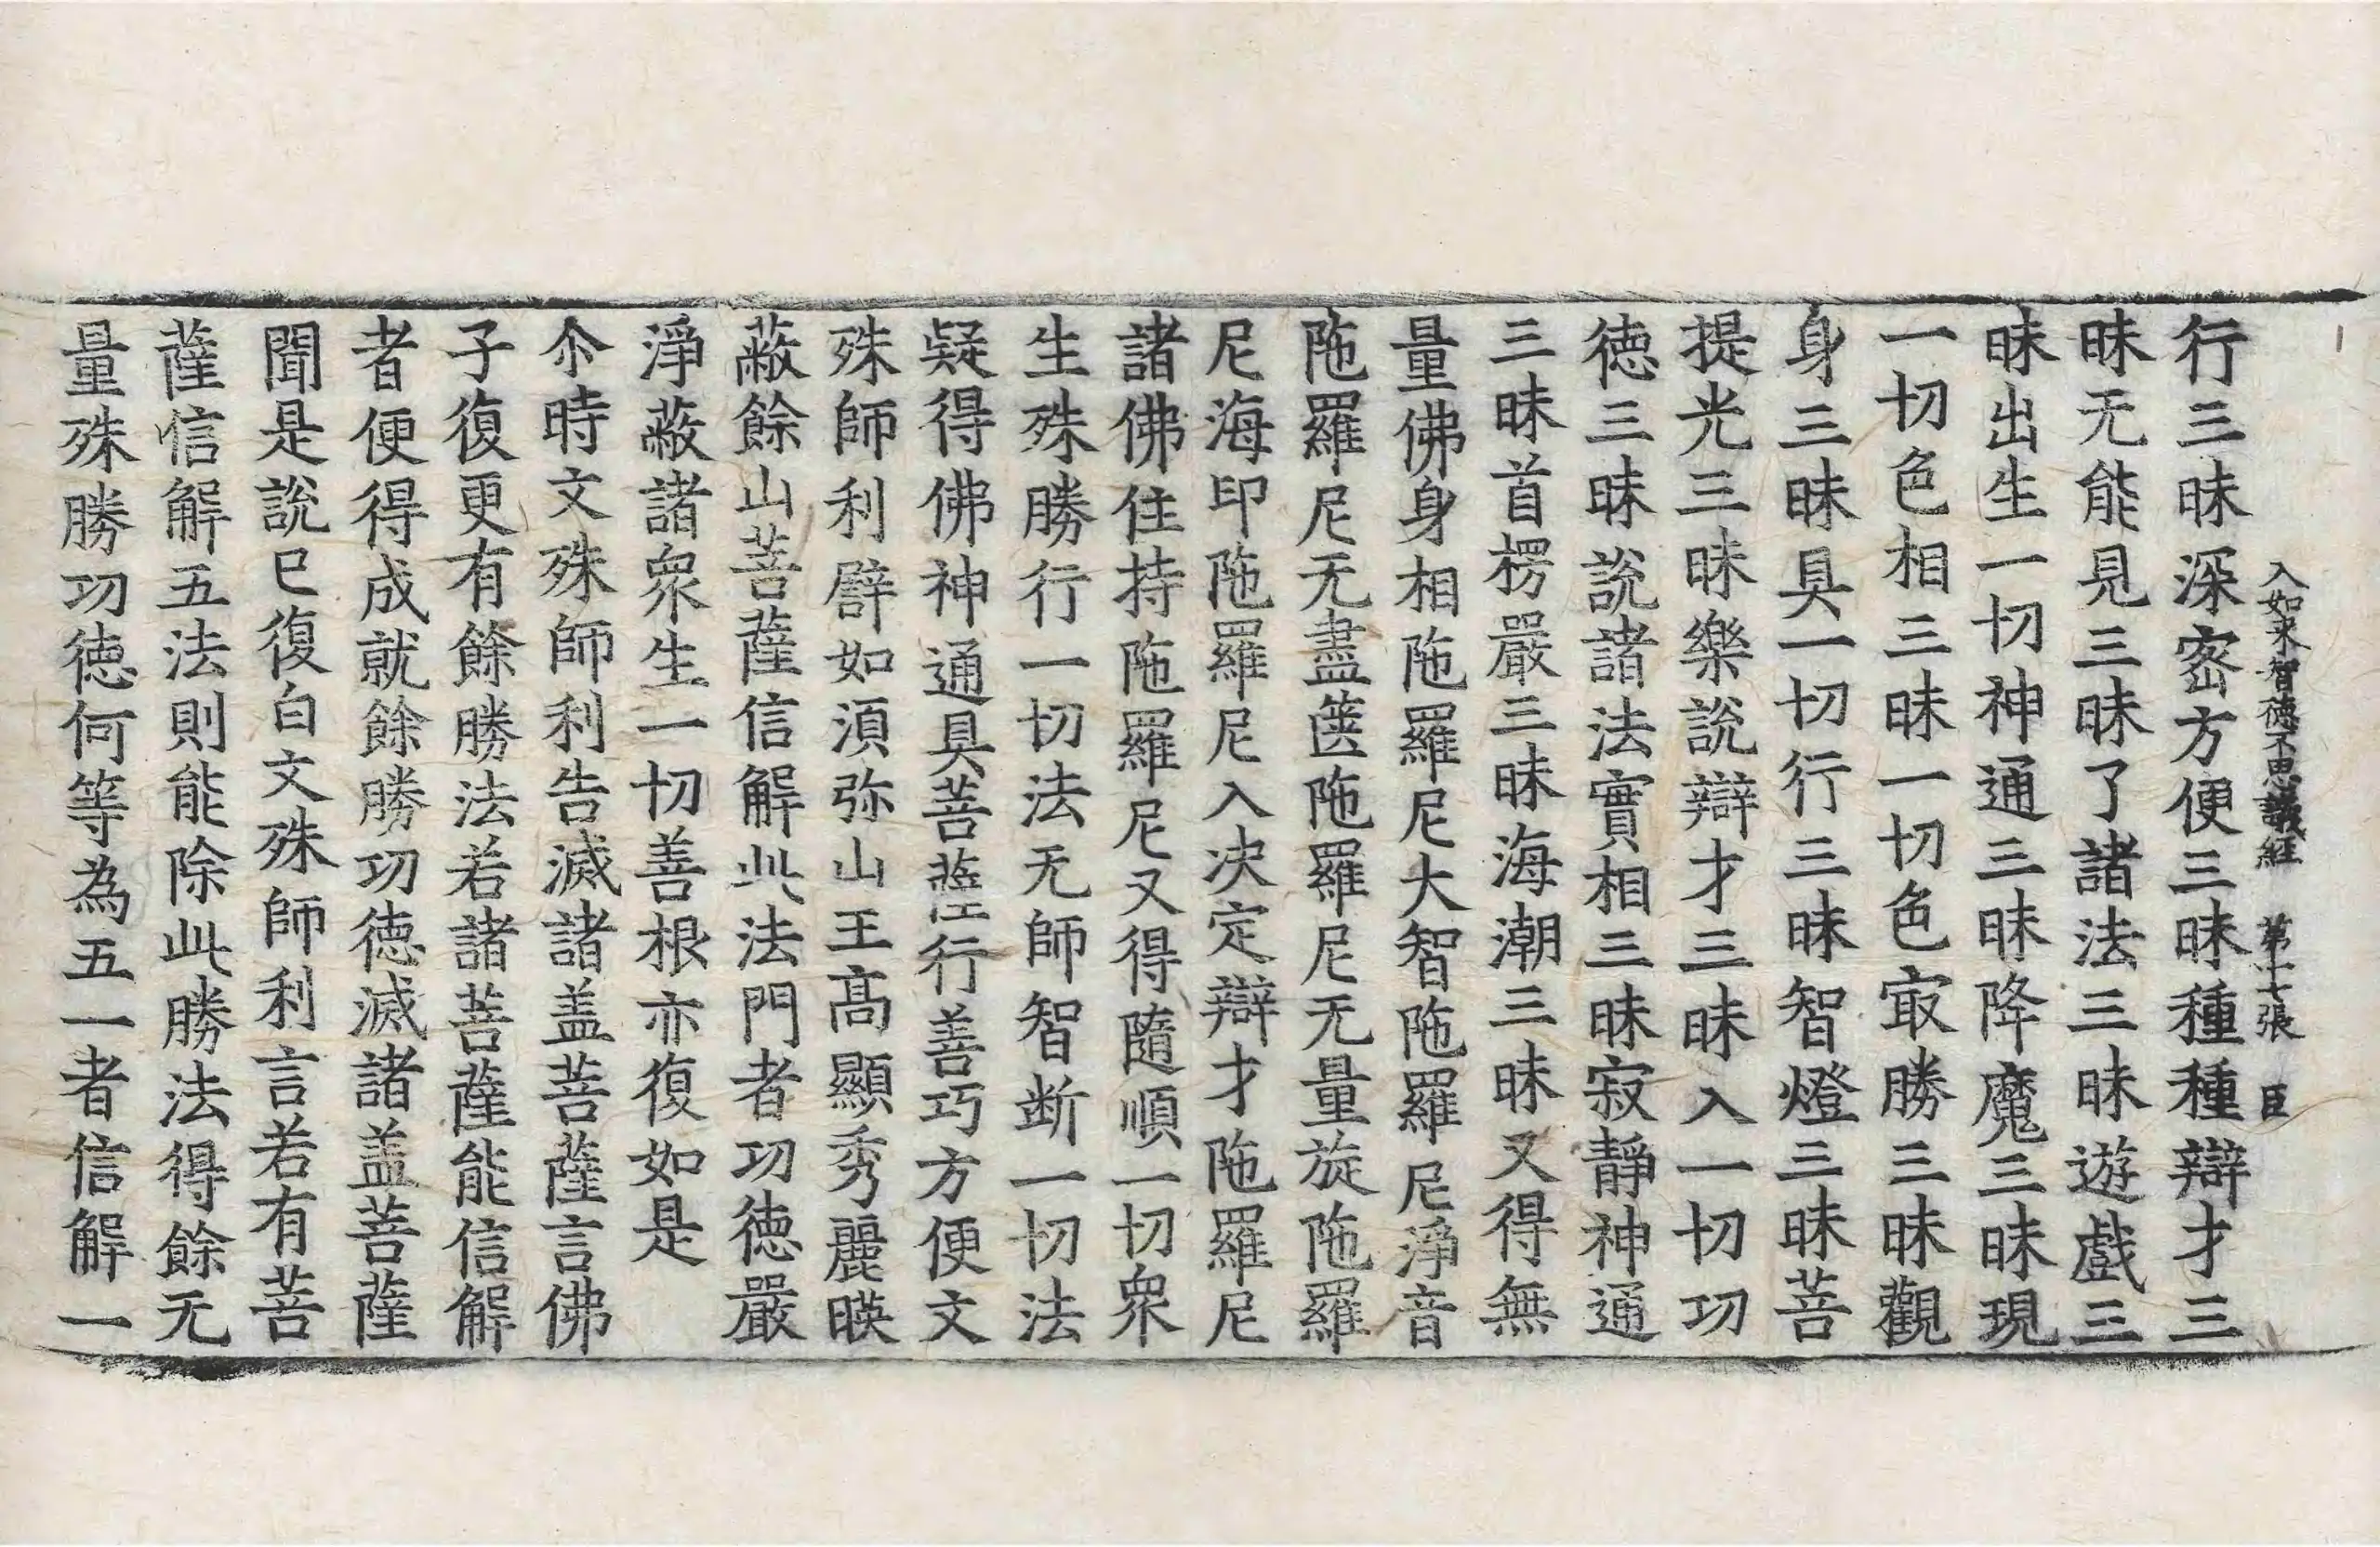 入如來智德不思議經 第十七張 臣
行三昧深密方便三昧種種辯才三
昧无能見三昧了諸法三昧遊戲三
昧出生一切神通三昧降魔三昧現
一切色相三昧一切色㝡勝三昧觀
身三昧具一切行三昧智燈三昧菩
提光三昧樂說辯才三昧入一切功
德三昧說諸法實相三昧寂靜神通
三昧首楞嚴三昧海潮三昧又得無
量佛身相陁羅尼大智陁羅尼淨音
陁羅尼无盡篋陁羅尼无量旋陁羅
尼海印陁羅尼入決定辯才陁羅尼
諸佛住持陁羅尼又得隨順一切衆
生殊勝行一切法无師智断一切法
疑得佛神通具菩薩行善巧方便文
殊師利譬如湏弥山王高顯秀麗暎
蔽餘山菩薩信解此法門者功德嚴
淨蔽諸衆生一切善根亦復如是
尒時文殊師利告滅諸盖菩薩言佛
子復更有餘勝法若諸菩薩能信解
者便得成就餘勝功德滅諸盖菩薩
聞是說已復白文殊師利言若有菩
薩信解五法則能除此勝法得餘无
量殊勝功德何等為五一者信解一